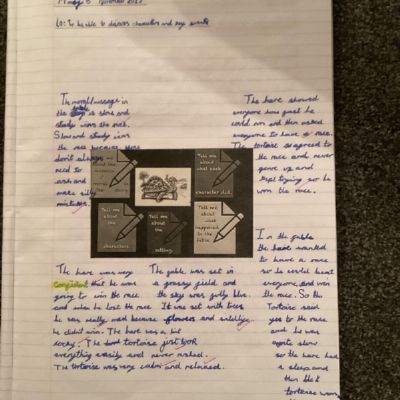 November
LO: To be able to discuss characters and key events
The moral/message in
the fable is slow and
steady wins the race.
Slow and steady wins
the race because you
don't always
need to
rush and
make silly
mistakes.
The hare showed
everyone how fast he
could run and then asked
everyone to have a race.
The tortoise agreed to
the race and never
gave up and
kept trying so he
won the race.
Tell me
about
Tell me
about
what each
character did.
Tell me
about
the
characters.
Tell me
about
the
setting.
Tell me
about
what
happened
in the
fable.
In the fable
the hare wanted
to have a race
so he could beat
everyone and won
the race. So the
Tortoise said
yes to the race
and he was
quite slow
so the hare had
a sleep and
then the
tortoise won
The hare was very
confident that he was
going to win the race
and when he lost the race
he was really mad because
he didn't win. The hare was a bit
cocky. The tortoise just took
everything easily and never rushed.
The tortoise was very calm and relaxed.
The fable was set in
a grassy field and
the sky was fully blue.
It was set with trees
flowers and wildlife.